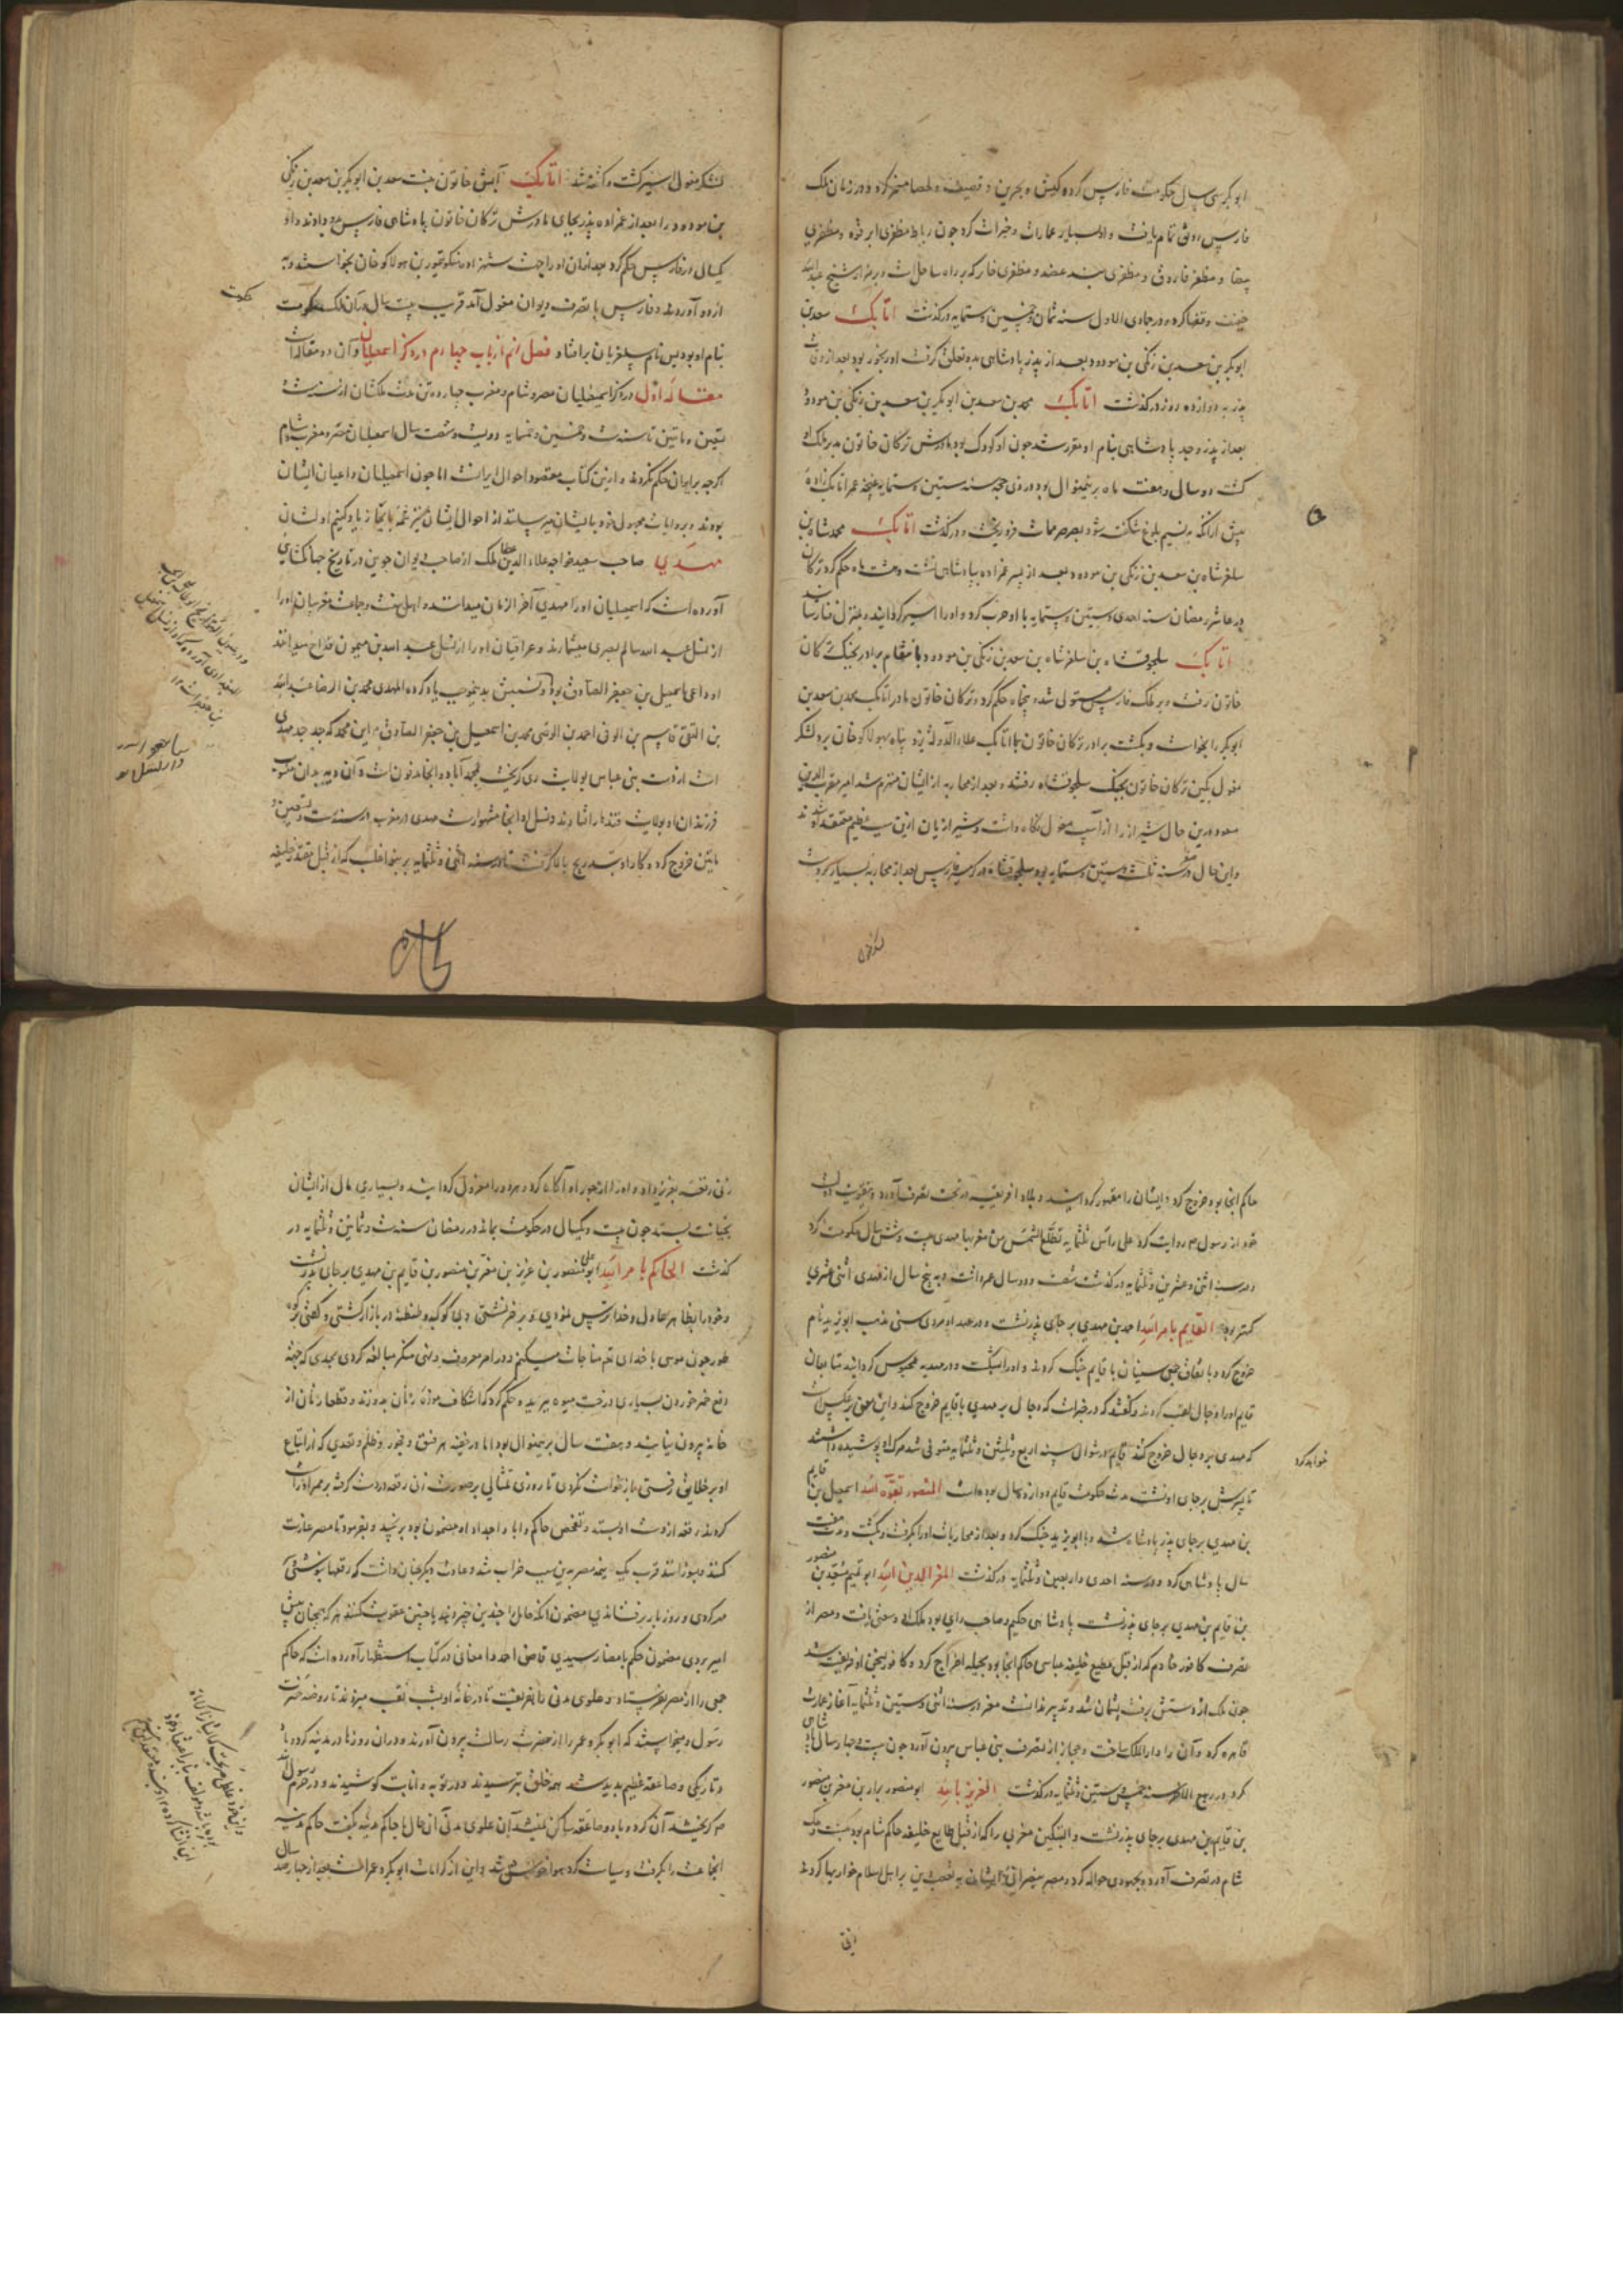 ابوبکر سی سال حکومت فارس کرد و کیش و بحرین و قطیف و لحصا مسخر کرد و در زمان ملک
فارس رونق تمام یافت و او را بسیار عمارات و خیرات کرد چون رباط مظفری ابرقوه و مظفری
بیضا و مظفر فاروق و مظفری بند عضد و مظفری خار که بر راه ساحل است و بر مزار شیخ عبدالله
خفیف وقفها کرد و در جمادی الاول سنه ثمان و خمسین و ستمایه درگذشت اتابک سعد بن
ابوبکر بن سعد بن زنگی بن مودود بعد از پدر پادشاهی بدو تعلق گرفت او رنجور بود بعد از وفات
پدر به دوازده روز درگذشت اتابک محمد بن سعد بن ابوبکر بن سعد بن زنگی بن مودود
بعد از پدر و جد پادشاهی بنام او مقرر شد چون او کودک بود مادرش ترکان خاتون مدبر ملک او
گشت دو سال و هفت ماه برین منوال بود در ذی حجه سنه ستین و ستمایه غنچه عمر اتابک زاده
پیش از آنکه به نسیم بلوغ شکفته شود بصرصر ممات فرو ریخت و درگذشت اتابک محمد شاه بن
سلغر شاه بن سعد بن زنگی بن مودود بعد از پسر عمزاده بپادشاهی نشست و هشت ماه حکم کرد ترکان
در عاشر رمضان سنه احدی و ستین و ستمایه با او حرب کرد و او را اسیر گردانید و
اتابک سلجوقشاه بن سلغر شاه بن سعد بن زنگی بن مودود بانتقام برادر بجنگ ترکان
خاتون رفت و بر ملک فارس مستولی شد و پنج ماه حکم کرد و ترکان خاتون مادر اتابک محمد بن سعد بن
ابوبکر را بخواست و بکشت برادر ترکان خاتون با اتابک علاء الدوله یزد پناه بهولاکو خان برد لشکر
مغول بکین ترکان خاتون بجنگ سلجوقشاه رفتند و بعد از محاربه از ایشان منهزم شد امیر مقرب الدین
مسعود درین حال شیراز را از آسیب مغول نگاه داشت و شیرازیان ازین سبب عظیم معتقد او شدند
و این حال در سنه ثلث و ستین و ستمایه بود سلجوقشاه در فارس بعد از محاربه بسیار بر دست
لشکر مغول
لشکر مغول اسیر گشت و کشته شد اتابک آبش خاتون بنت سعد بن ابوبکر بن سعد بن زنگی
بن مودود را بعد از عمزاده پدر بجای مادرش ترکان خاتون پادشاهی فارس بدو دادند و او
یکسال در فارس حکم کرد بعد از آن او را جهت شهزاده منکو تیمور بن هولاکو خان بخواستند و به
اردو آوردند و فارس با تصرف دیوان مغول آمد قریب بیست سال در آن ملک حکومت
حکومت
بنام او بود پس نام سلغریان برافتاد فصل نهم از باب چهارم در ذکر اسمعیلیان و آن دو مقالت است
مقاله اول در ذکر اسمعیلیان مصر و شام و مغرب چهارده تن مدت ملکشان از سنه ست
تسعین و ماتین تا سنه ست و خمسین و خمسمایه دویست و شصت سال اسمعیلیان مصر و مغرب و شام
اگرچه بر ایران حکم نکردند و ازین کتاب مقصود احوال ایران است اما چون اسمعیلیان داعیان ایشان
بودند و بروایات مجهول خود بایشان میرسانند از احوال ایشان نیز شمه بایجاز یاد کنیم اولشان
مهدی صاحب سعید خواجه علاء الدین عطا ملک از صاحب دیوان جوین در تاریخ جهانگشای
آورده است که اسمعیلیان او را مهدی آخر الزمان میدانند و اهل سنت و جماعت مغربیان او را
از نسل عبد الله سالم بصری میشمارند و عراقیان او را از نسل عبد الله بن میمون قداح میدانند
او داعی اسمعیل بن جعفر الصادق بود و نسبش بدین موجب یاد کرده المهدی محمد بن الرضا عبد الله
بن التقی قاسم بن الوفی احمد بن الوصی محمد بن اسمعیل بن جعفر الصادق و این محمد که جد جد مهدی
است از دست بنی عباس بولایت ری گریخت بمحمد آباد و آنجا مدفون است و آن دیه بدان منسوب
فرزندان او بولایت قندهار افتادند و نسل او آنجا مشهور است مهدی در مغرب در سنه ست و تسعین
ماتین خروج کرد و کار او بتدریج بالا گرفت تا در سنه اثنی و ثلثمایه بر بنی اغلب که از قبل مقتدر خلیفه
حاکم آنجا بود خروج کرد و ایشان را مقهور گردانید و بلاد افریقیه در تحت تصرف آورد و
خود از رسول صم روایت کرد علی راس ثلثمایه تطلع الشمس من مغربها مهدی بیست و شش سال حکومت کرد
در سنه اثنی و عشرین و ثلثمایه درگذشت شصت و دو سال عمر داشت و به پنج سال از مهدی اثنی عشری
کمتر بود القایم بامر الله احمد بن مهدی بر جای پدر نشست و در عهد او مردی سنی مذهب ابو یزید نام
خروج کرد و باتفاق سنیان با قایم جنگ کردند و او را بشکست و در مهدیه محبوس گردانید متابعان
قایم او را دجال لقب کردند و گفتند که در خبر است که دجال بر مهدی یا قایم خروج کند و این معنی بر عکس است
که مهدی بر دجال خروج کند قایم در شوال سنه اربع و ثلثین و ثلثمایه متوفی شد مرگ او پوشیده داشتند
خواهد کرد
تا پسرش بر جای او نشست مدت حکومت قایم دوازده سال بوده است المنصور بقوة الله اسمعیل بن قایم
بن مهدی بر جای پدر پادشاه شد و با ابو یزید جنگ کرد و بعد از محاربات او را بگرفت و بکشت و مدت هفت
سال پادشاهی کرد و در سنه احدی و اربعین و ثلثمایه درگذشت المعز لدین الله ابو تمیم معد بن منصور
بن قایم بن مهدی بر جای پدر نشست پادشاهی حکیم و صاحب رای بود ملک او وسعتی یافت و مصر از
تصرف کافور خادم که از قبل مطیع خلیفه عباسی حاکم آنجا بود بحیله اخراج کرد و کافور بسخن او فریفته شد
چون ملک از دستش برفت پشیمان شد و تدبیر ندانست معز در سنه اثنی و ستین و ثلثمایه آغاز عمارت
قاهره کرد و آن را دار الملک ساخت و حجاز از تصرف بنی عباس بیرون آورد چون بیست و چهار سال پادشاهی
کرد در ربیع الاخر سنه خمس و ستین و ثلثمایه درگذشت العزیز بالله ابو منصور نزار بن معز بن منصور
بن قایم بن مهدی بر جای پدر نشست و البتکین معزی را که از قبل طایع خلیفه حاکم شام بود
شام در تصرف آورد و بجهودی حواله کرد و مصر بنصرانی و ایشان به تعصب دین بر اهل اسلام خواریها کردند
زنی
زنی رقعه بعزیز داد و او را از جور آن آگاه کرد و هر دو را معزول گردانید و بسیاری مال از ایشان
بخیانت بستد چون بیست و یکسال در حکومت بماند در رمضان سنه ست و ثمانین و ثلثمایه در
گذشت الحاکم بامر الله ابو علی منصور بن عزیز بن معز بن منصور بن قایم بن مهدی بر جای پدر نشست
و خود را بظاهر عادل و خدا ترس نمودی و بر خر نشستی و بی کوکبه و طنطنه در بازار گشتی و گفتی بر کوه
طور چون موسی با خدای تعم مناجات میکنم و در امر معروف و نهی منکر مبالغه کردی بحدی که جهة
دفع خمر خوردن بسیاری درخت میوه ببرید و حکم کرد که اسکاف موزه زنان ندوزند و قطعا زنان از
خانه بیرون نیایند و هفت سال برین منوال بود اما در خفیه هر فسق و فجور و ظلم و تعدی که از اتباع
او بر خلایق رفتی بازخواست نکردی تا روزی تمثالی بر صورت زن رقعه در دست گرفته بر ممر او راست
کردند رقعه از دست او بستد و تفحص حاکم و ابا و اجداد او مضمون بود برنجید و بفرمود تا مصر غارت
کنند و بسوزانند قرب یک نیمه مصر بدین سبب خراب شد و عادت دیگر چنان داشت که رقعها بنوشتی
مهر کردی و روز بار برفشاندی مضمون آنکه حامل را چندین چیز دهند یا چنین عقوبت کنند هر که همچنان پیش
امیر بردی مضمون حکم بامضا رسیدی قاضی احمد دامغانی در کتاب استظهار آورده است که حاکم
جمعی را از مصر بفرستاد و علوی مدنی را بفریفت تا در خانه او بشب نقب میزدند تا روضه حضرت
رسول و میخواستند که ابوبکر و عمر را از حضرت رسالت بیرون آورند و در آن روزها در مدینه گرد و باد
و تاریکی و صاعقه عظیم پدید شد همه خلق بترسیدند و در توبه و انابت کوشیدند و در حرم رسول الله
صم گریختند آن گرد و باد و صاعقه ساکن نمیشد آن علوی مدنی آن حال با حاکم مدینه بگفت حاکم مدینه
آنجماعت را بگرفت و سیاست کرد هوا خوش شد و این از کرامات ابوبکر و عمر است بعد از چهارصد سال